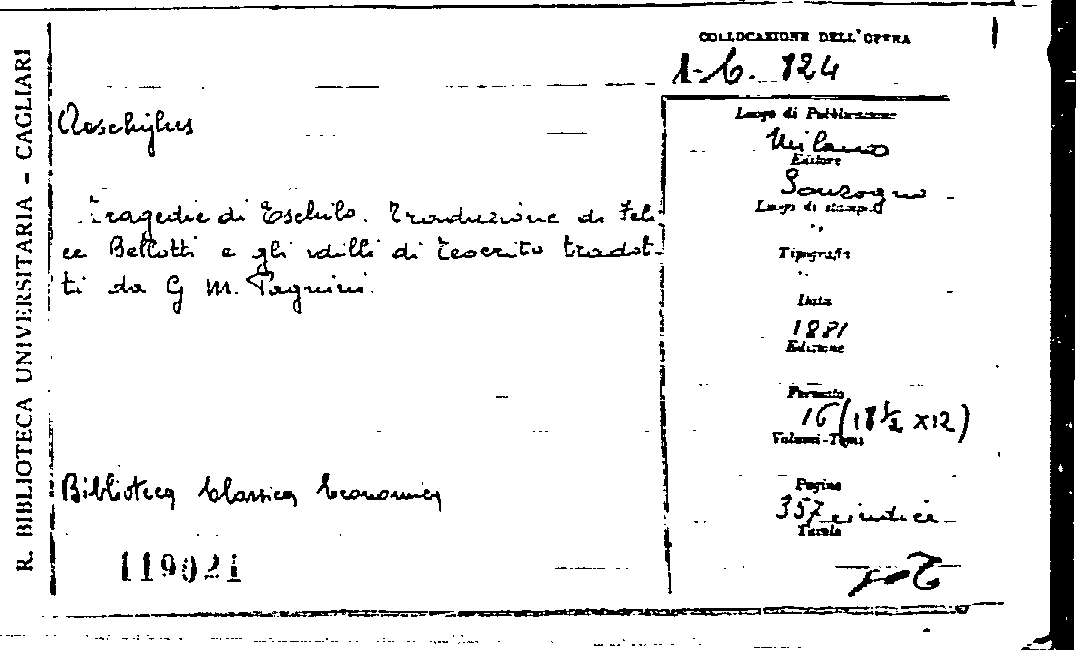 R. BIBLIOTECA UNIVERSITARIA - CAGLIARI
COLLOCAZIONE DELL'OPERA
1-6. 124
Aeschylus
Tragedie di Eschilo. Traduzione di Feli-
ce Bellotti e gli idilli di Teocrito tradot-
ti da G M. Pagnini.
Biblioteca Classica Economica
119021
Luogo di Pubblicazione
Milano
Editore
Sonzogno
Luogo di stampa
"
Tipografia
"
Data
1881
Edizione
Formato
16 (18 ½ x 12)
Volumi-Tomi
Pagine
357 e indice
Tavole